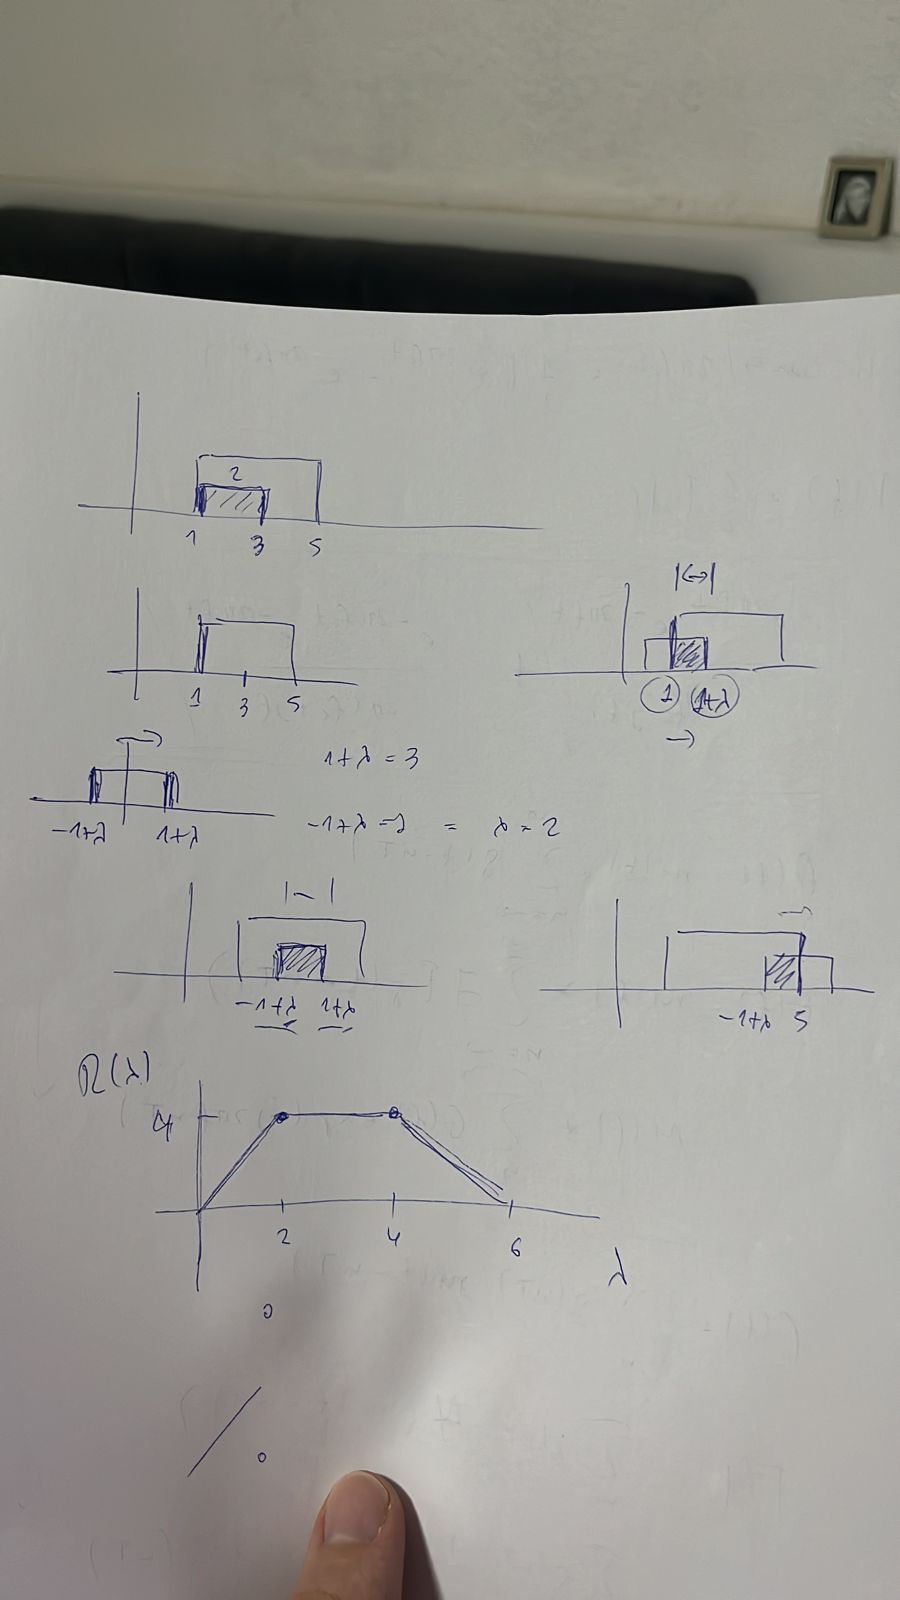 2
1 3 5
|<->|
1 3 5
1 1+λ
1+λ = 3
-1+λ 1+λ
-1+λ = 1 = λ = 2
-1+λ 1+λ
-1+λ 5
R(λ)
4
2 4 6
λ